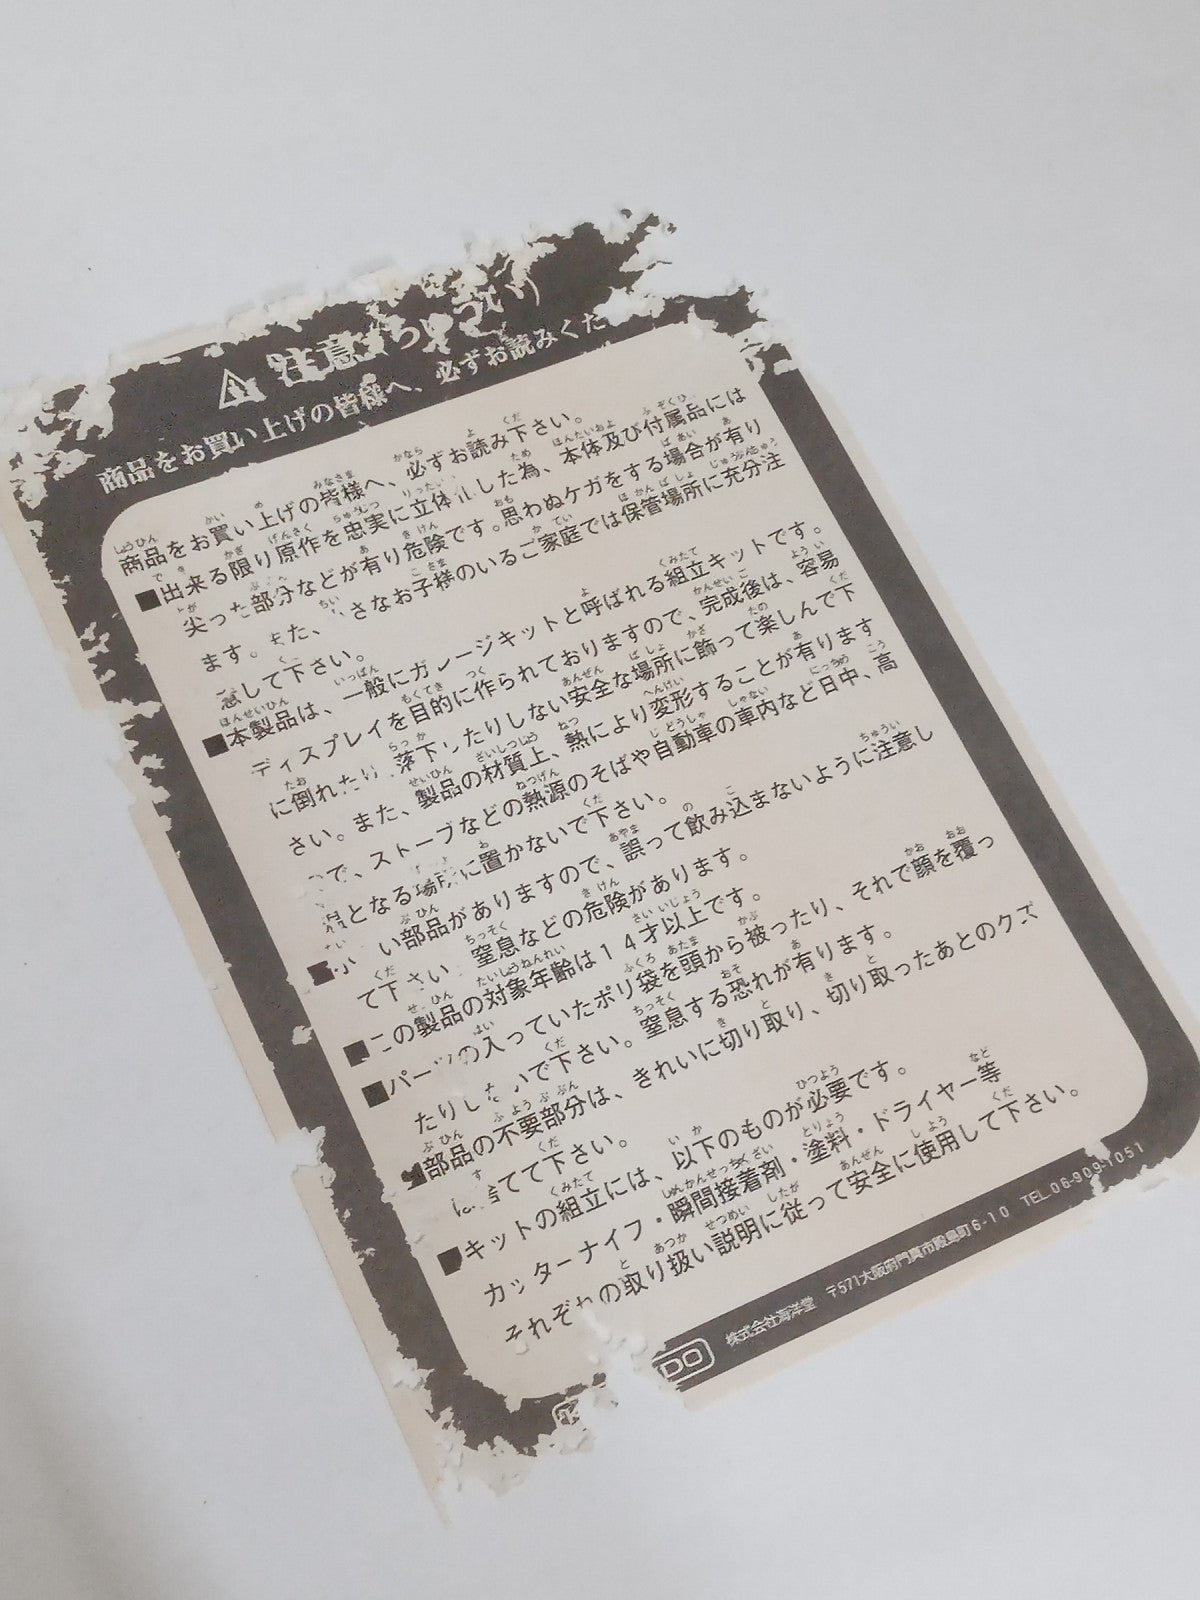 注意(ちゅうい)
商品をお買い上げの皆様へ、必ずお読みくだ
商品をお買い上げの皆様へ、必ずお読み下さい。
■出来る限り原作を忠実に立体化した為、本体及び付属品には
尖った部分などが有り危険です。思わぬケガをする場合が有り
ます。また、小さなお子様のいるご家庭では保管場所に充分注
意して下さい。
■本製品は、一般にガレージキットと呼ばれる組立キットです。
ディスプレイを目的に作られておりますので、完成後は、容易
に倒れたり、落下したりしない安全な場所に飾って楽しんで下
さい。また、製品の材質上、熱により変形することが有ります
ので、ストーブなどの熱源のそばや自動車の車内など日中、高
温となる場所に置かないで下さい。
■小さい部品がありますので、誤って飲み込まないように注意し
て下さい。窒息などの危険があります。
■この製品の対象年齢は14才以上です。
■パーツの入っていたポリ袋を頭から被ったり、それで顔を覆っ
たりしないで下さい。窒息する恐れが有ります。
■部品の不要部分は、きれいに切り取り、切り取ったあとのクズ
は捨てて下さい。
■キットの組立には、以下のものが必要です。
カッターナイフ・瞬間接着剤・塗料・ドライヤー等
それぞれの取り扱い説明に従って安全に使用して下さい。
DO 株式会社海洋堂 〒571大阪府門真市殿島町6-10 TEL 06-909-1051